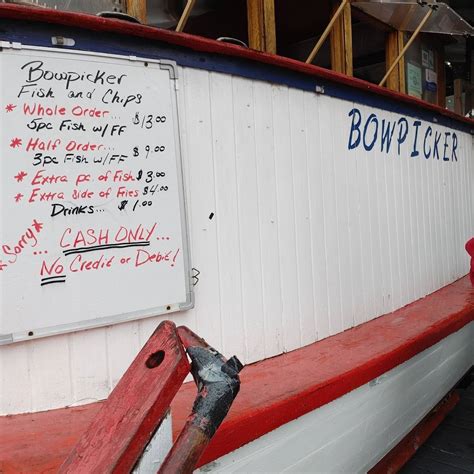 Bowpicker
Fish and Chips
* Whole Order... $13.00
5pc Fish w/FF
* Half Order... $9.00
3pc Fish w/FF
* Extra pc. of Fish $3.00
* Extra side of Fries $4.00
Drinks... $1.00
*Sorry*
CASH ONLY...
No Credit or Debit!
BOWPICKER